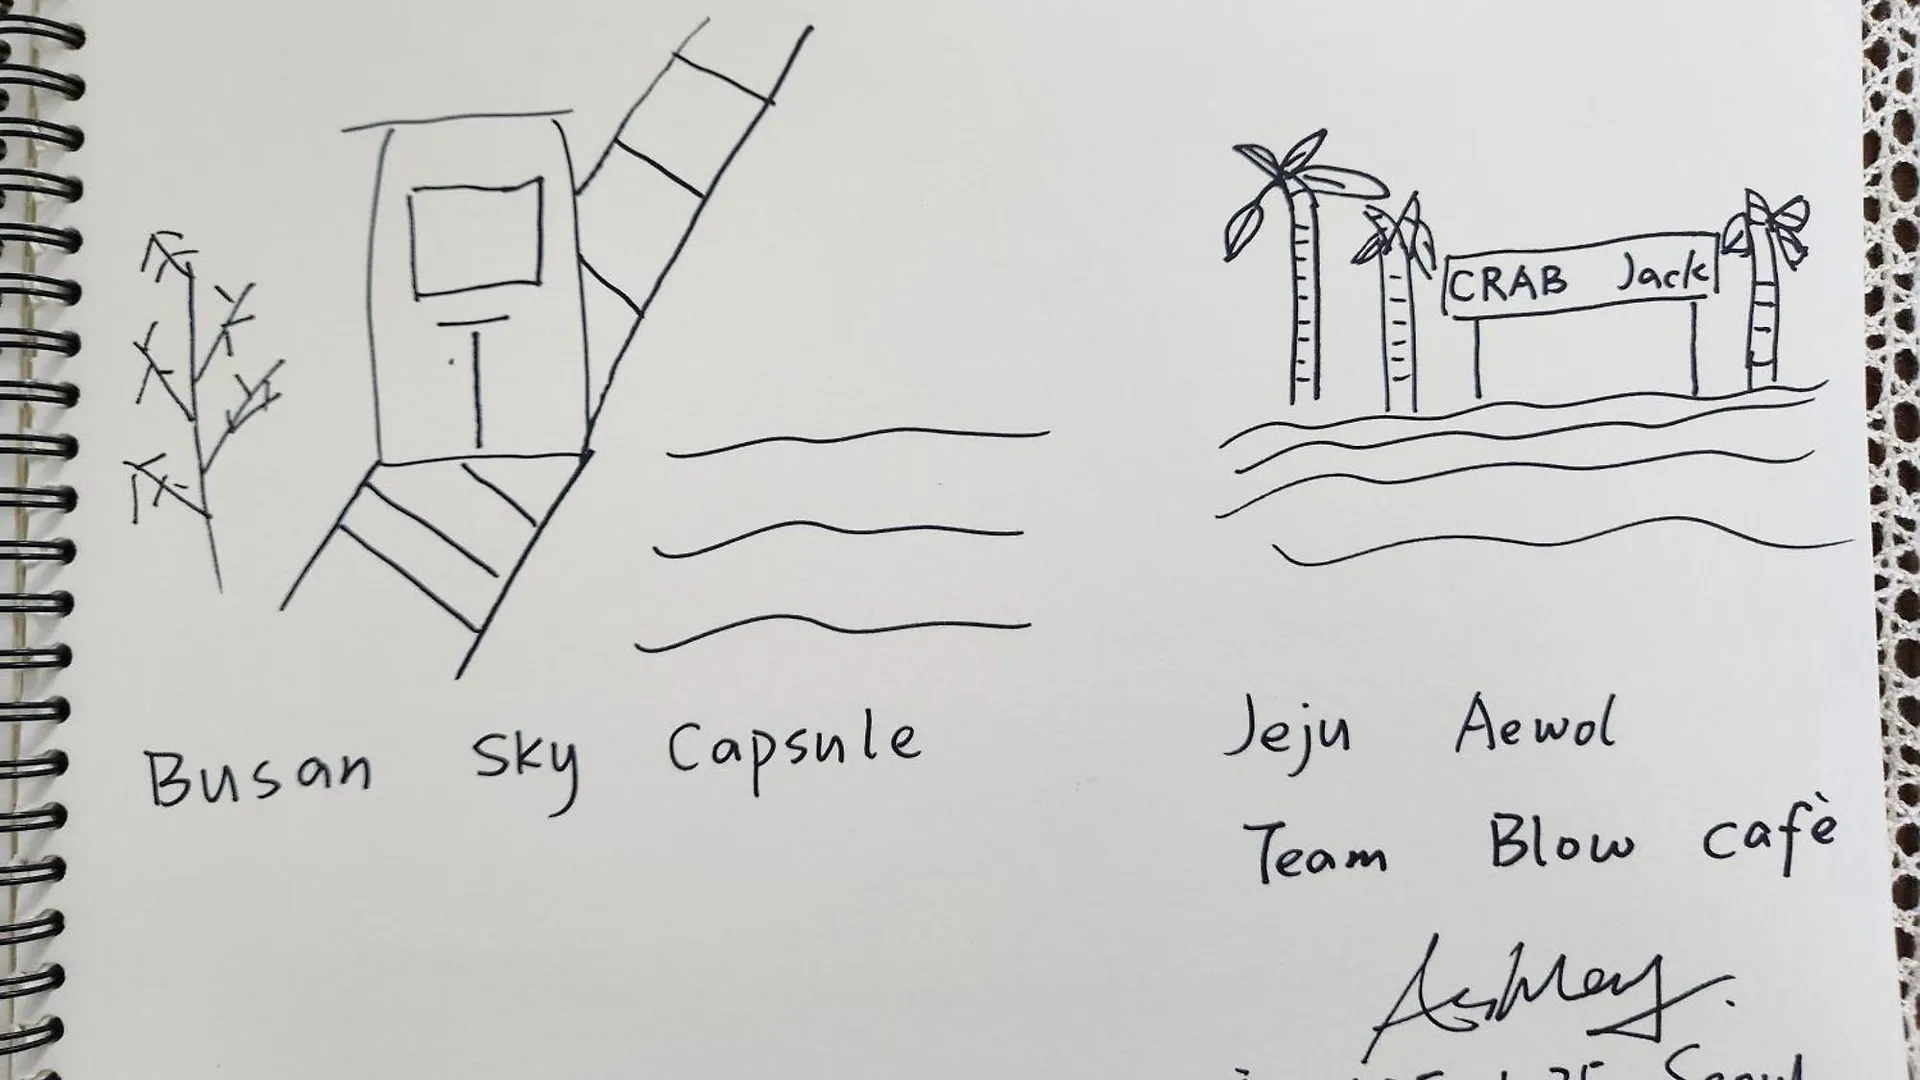 CRAB Jack
Busan Sky Capsule
Jeju Aewol
Team Blow cafè
Ashley.
Seoul